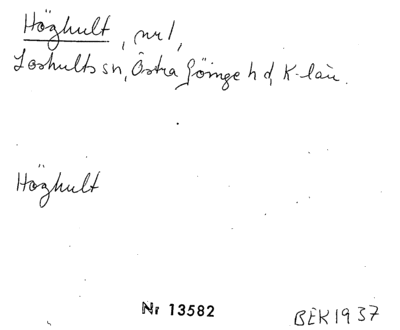 Höghult, nr 1,
Loshults sn, Östra Göinge hd, K-län.
Höghult
Nr 13582
BEK 1937